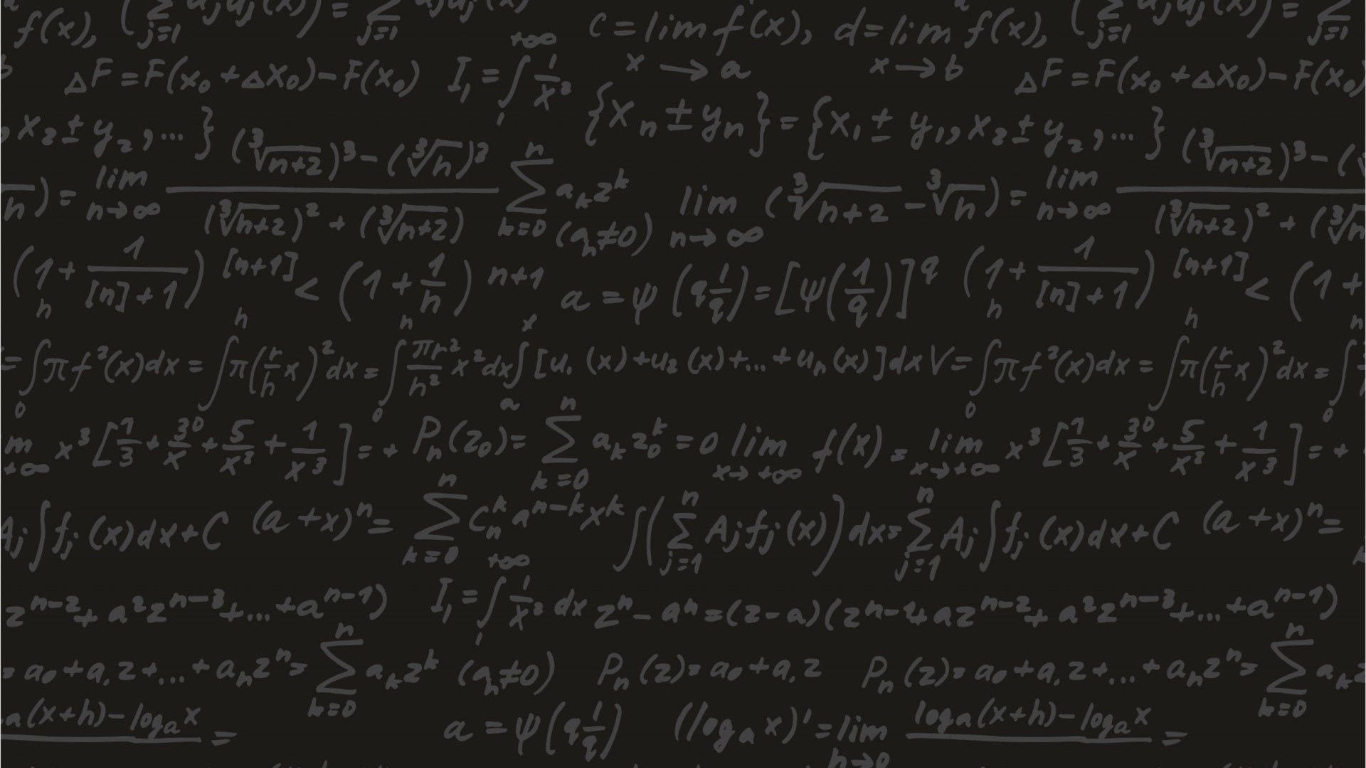 f(x), (∑_{j=1} a_j u_j(x)) = ∑_{j=1} a_j u_j(x) c = lim_{x→a} f(x), d = lim_{x→b} f(x), (∑_{j=1} a_j u_j(x)) = ∑_{j=1}
△F = F(x₀ + △x₀) − F(x₀) I₁ = ∫₁^{+∞} 1/x² △F = F(x₀ + △x₀) − F(x₀)
x₂ ± y₂, ... } {x_n ± y_n} = {x₁ ± y₁, x₂ ± y₂, ... }
n) = lim_{n→∞} ((∛(n+2))³ − (∛n)³)/((∛(n+2))² + (∛(n+2)) ∑_{k=0}^{n} a_k z^k (a_n ≠ 0) lim_{n→∞} (∛(n+2) − ∛n) = lim_{n→∞} ((∛(n+2))³ − ( / (∛(n+2))² + (∛n
(1 + 1/([n]+1))^{[n+1]} < (1 + 1/n)^{n+1} a = ψ(q 1/q) = [ψ(1/q)]^q (1 + 1/([n]+1))^{[n+1]} < (1 +
= ∫₀^h πf²(x)dx = ∫₀^h π(r/h x)² dx = ∫₀^h πr²/h² x² dx ∫_a^x [u₁(x) + u₂(x) + ... + u_n(x)]dx V = ∫₀^h πf²(x)dx = ∫₀^h π(r/h x)² dx = ∫₀^h
m_{+∞} x³ [1/3 + 30/x + 5/x² + 1/x³] = + P_n(z₀) = ∑_{k=0}^{n} a_k z₀^k = 0 lim_{x→+∞} f(x) = lim_{x→+∞} x³ [1/3 + 30/x + 5/x² + 1/x³] = +
A_j ∫ f_j(x)dx + C (a + x)^n = ∑_{k=0}^{n} C_n^k a^{n−k} x^k ∫(∑_{j=1}^{n} A_j f_j(x))dx = ∑_{j=1}^{n} A_j ∫ f_j(x)dx + C (a + x)^n =
z^{n−2} + a² z^{n−3} + ... + a^{n−1}) I₁ = ∫₁^{+∞} 1/x² dx z^n − a^n = (z − a)(z^{n−1} + a z^{n−2} + a² z^{n−3} + ... + a^{n−1})
= a₀ + a₁z + ... + a_n z^n = ∑_{k=0}^{n} a_k z^k (a_n ≠ 0) P_n(z) = a₀ + a₁z P_n(z) = a₀ + a₁z + ... + a_n z^n = ∑_{k=0}^{n} a_k z
a(x+h) − log_a x = a = ψ(q 1/q) (log_a x)' = lim_{h→0} log_a(x+h) − log_a x =